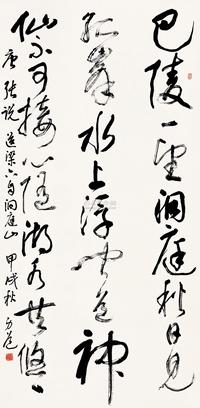 巴陵一望洞庭秋日見
孤峯水上浮聞道神
仙不可接心隨湖水共悠悠
唐 張說 送梁六自洞庭山 甲戌秋